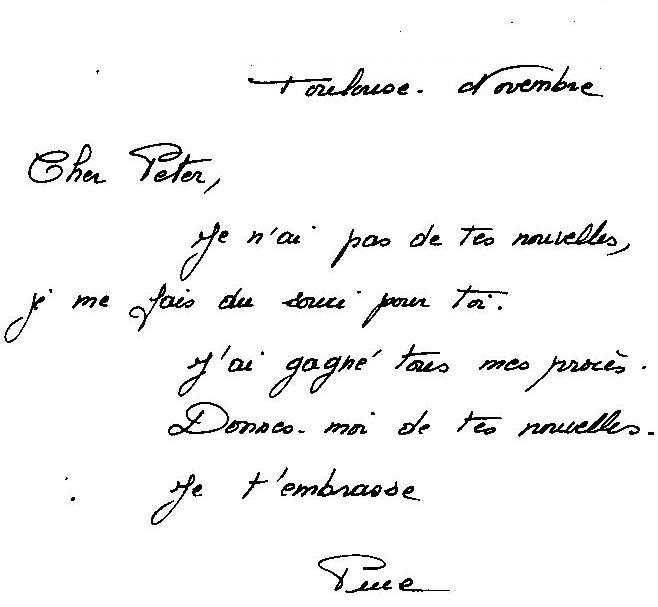 Toulouse. Novembre
Cher Peter,
Je n'ai pas de tes nouvelles,
je me fais du souci pour toi.
J'ai gagné tous mes procès.
Donnes-moi de tes nouvelles.
Je t'embrasse